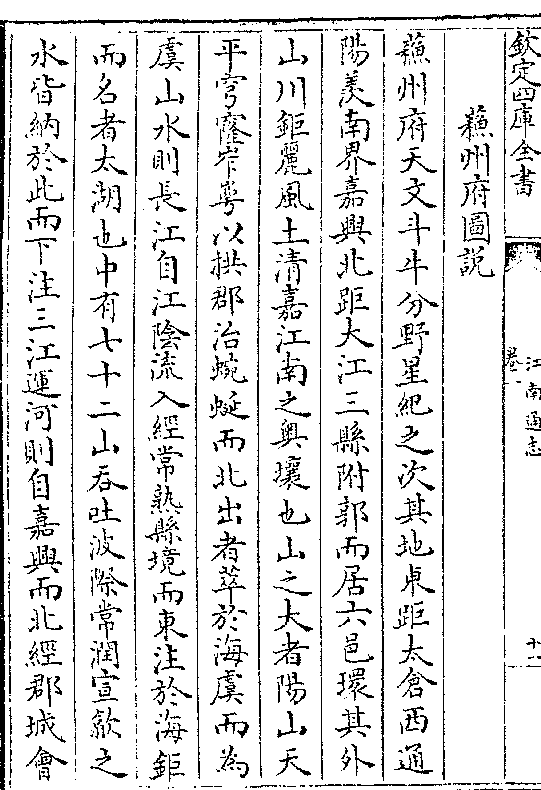 欽定四庫全書
江南通志
卷一
十一
蘇州府圖説
蘇州府天文斗牛分野星紀之次其地東距太倉西通
陽羨南界嘉興北距大江三縣附郭而居六邑環其外
山川鉅麗風土清嘉江南之奥壤也山之大者陽山天
平穹窿岝㟧以拱郡治蜿蜒而北出者萃於海虞而為
虞山水則長江自江陰流入經常熟縣境而東注於海鉅
而名者太湖也中有七十二山吞吐波際常潤宣歙之
水皆納於此而下注三江運河則自嘉興而北經郡城會